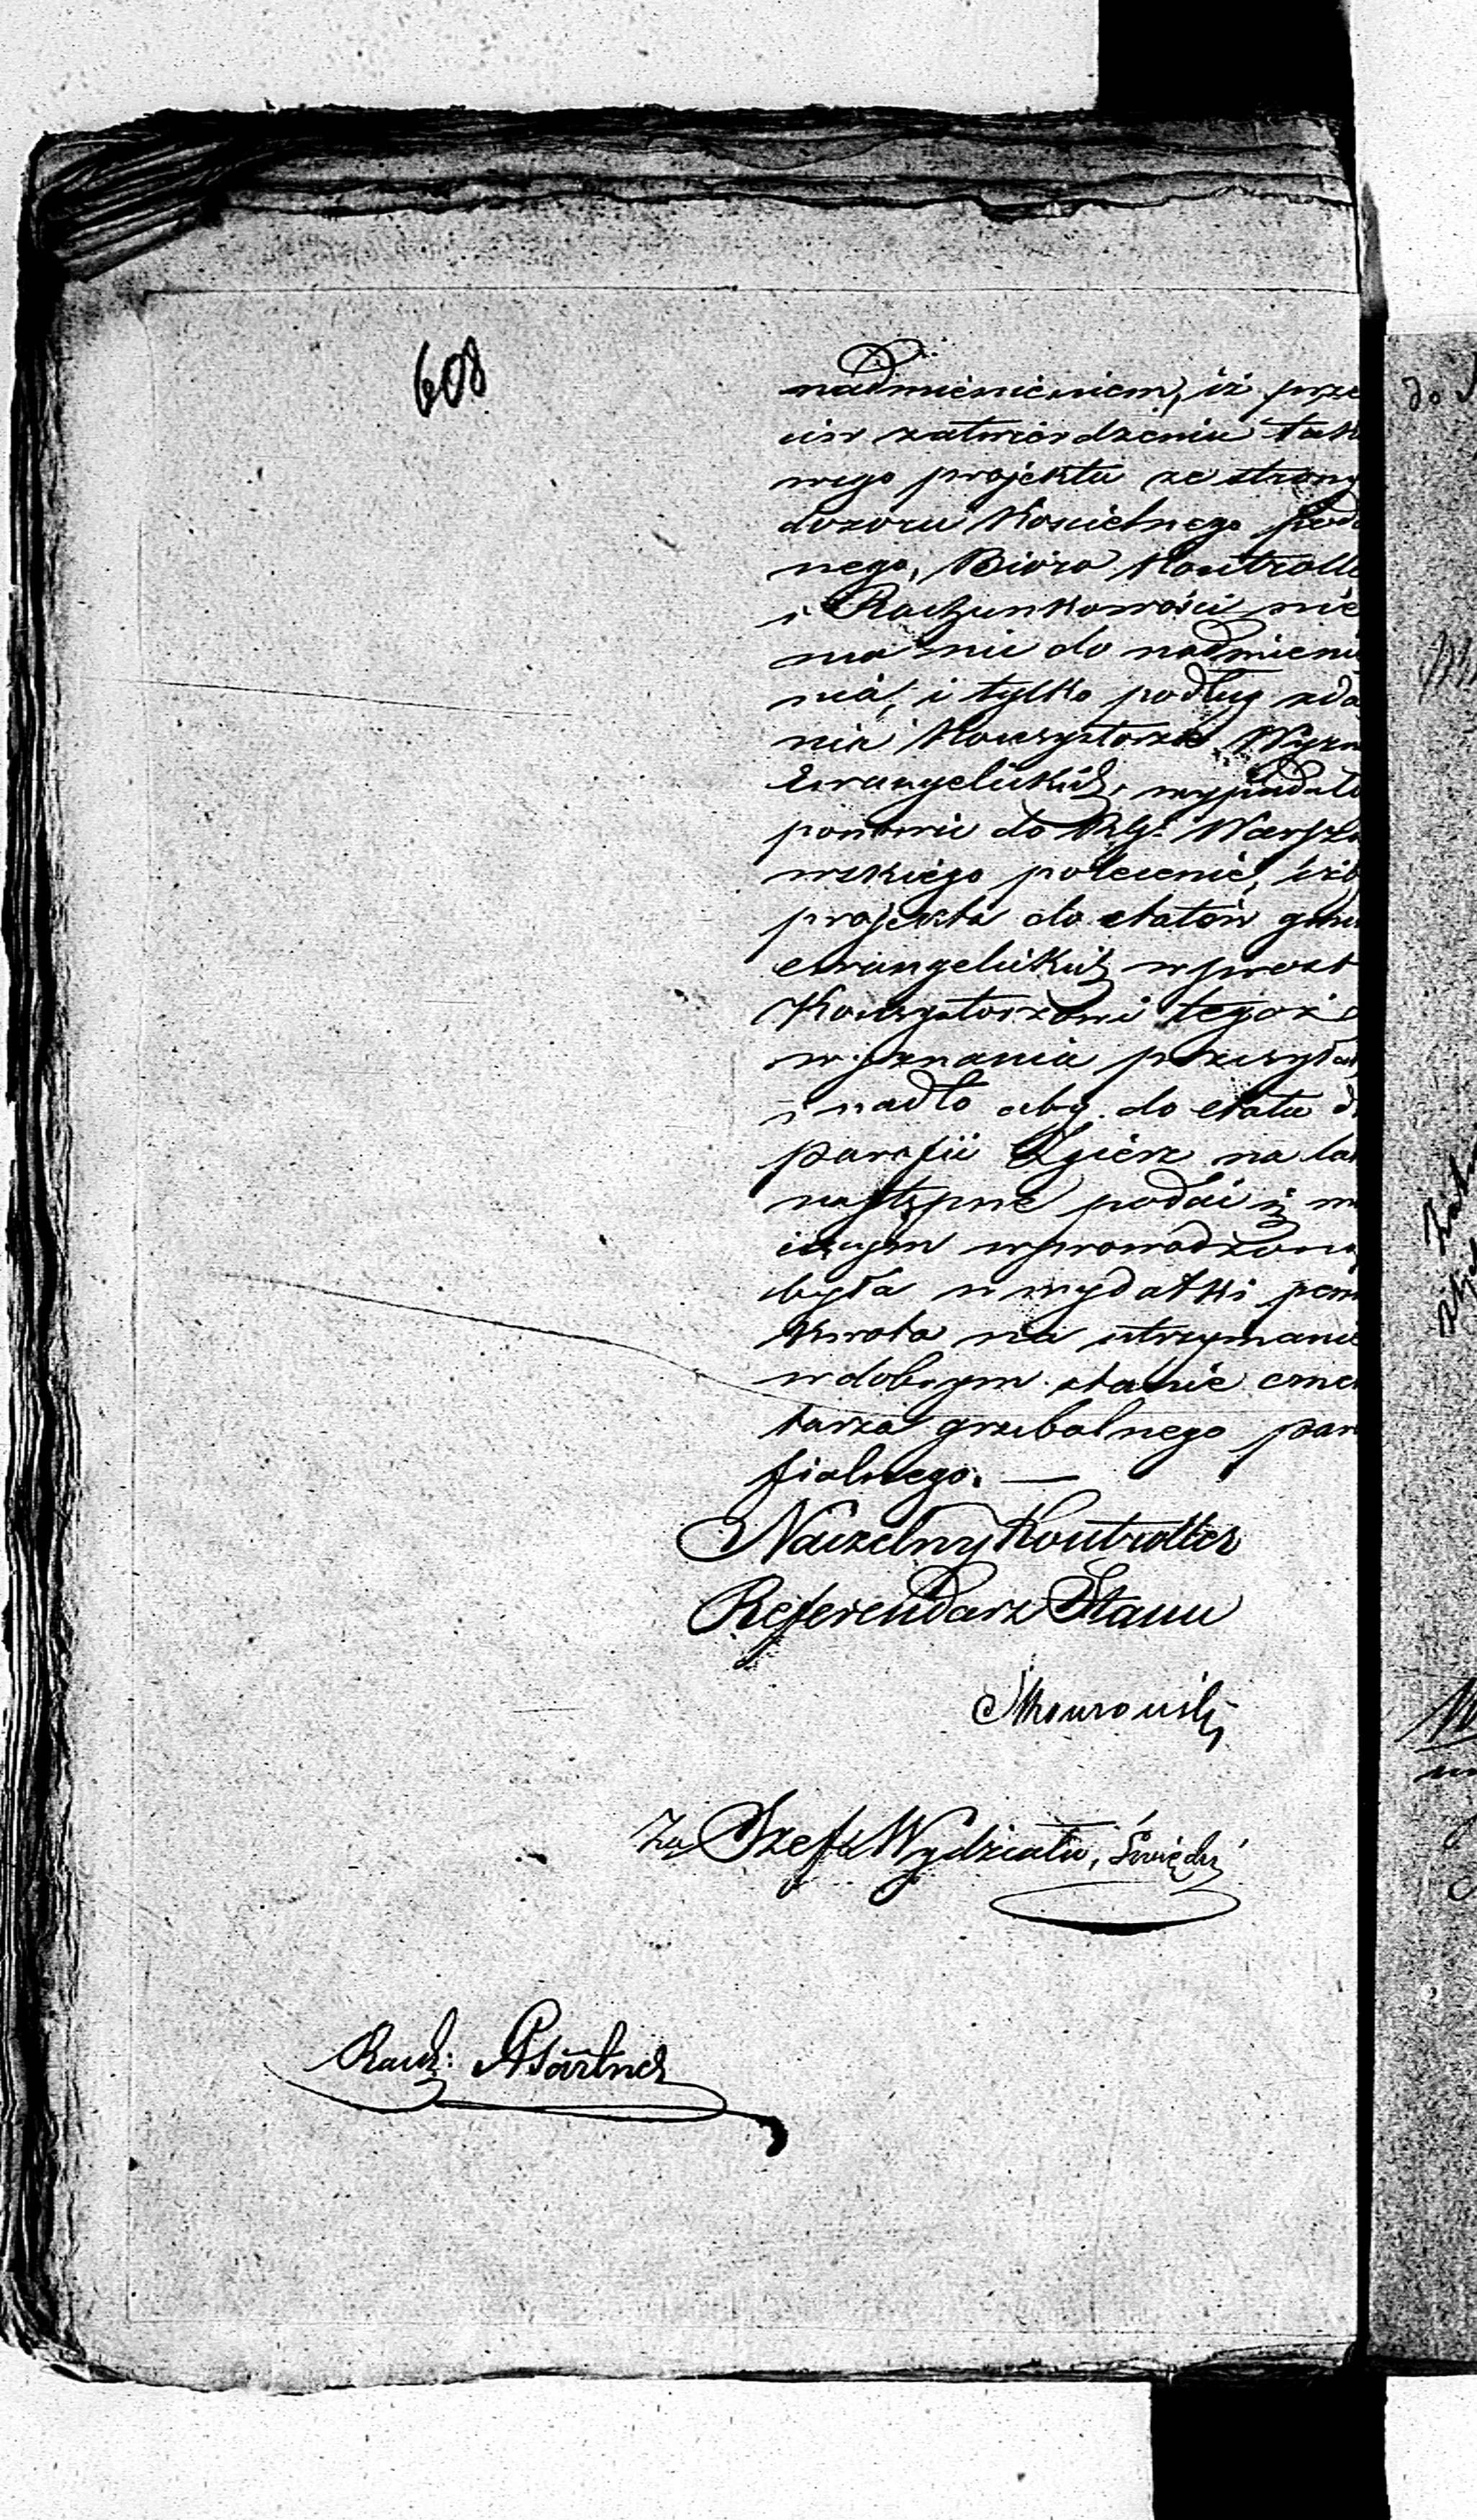 608
nadmienieniem, iż prze
ciw zatwierdzeniu tak
wego projektu ze strony
dozoru Kościelnego poda
nego, Bióro Kontrolli
i Rachunkowości nie
ma nic do nadmienie
nia, i tylko podług zda
nia Konsystorza Wyzn
Ewangelickich, wypadało
ponowić do Rzg. Warsza
wskiego polecenie, iżb
projekta do etatów gmin
ewangelickich wprost
Konsystorzowi tegoż
wyznania przesyłał
i nadto aby do etatu d
parafii Zgierz na lat
następne podać się ma
iącym wprowadzoną
była w wydatki pew
kwota na utrzymanie
w dobrym stanie cmen
tarza grzebalnego par
fialnego. —
Naczelny Kontroller
Referendarz Stanu
Za Szefa Wydziału,
Rach:
do